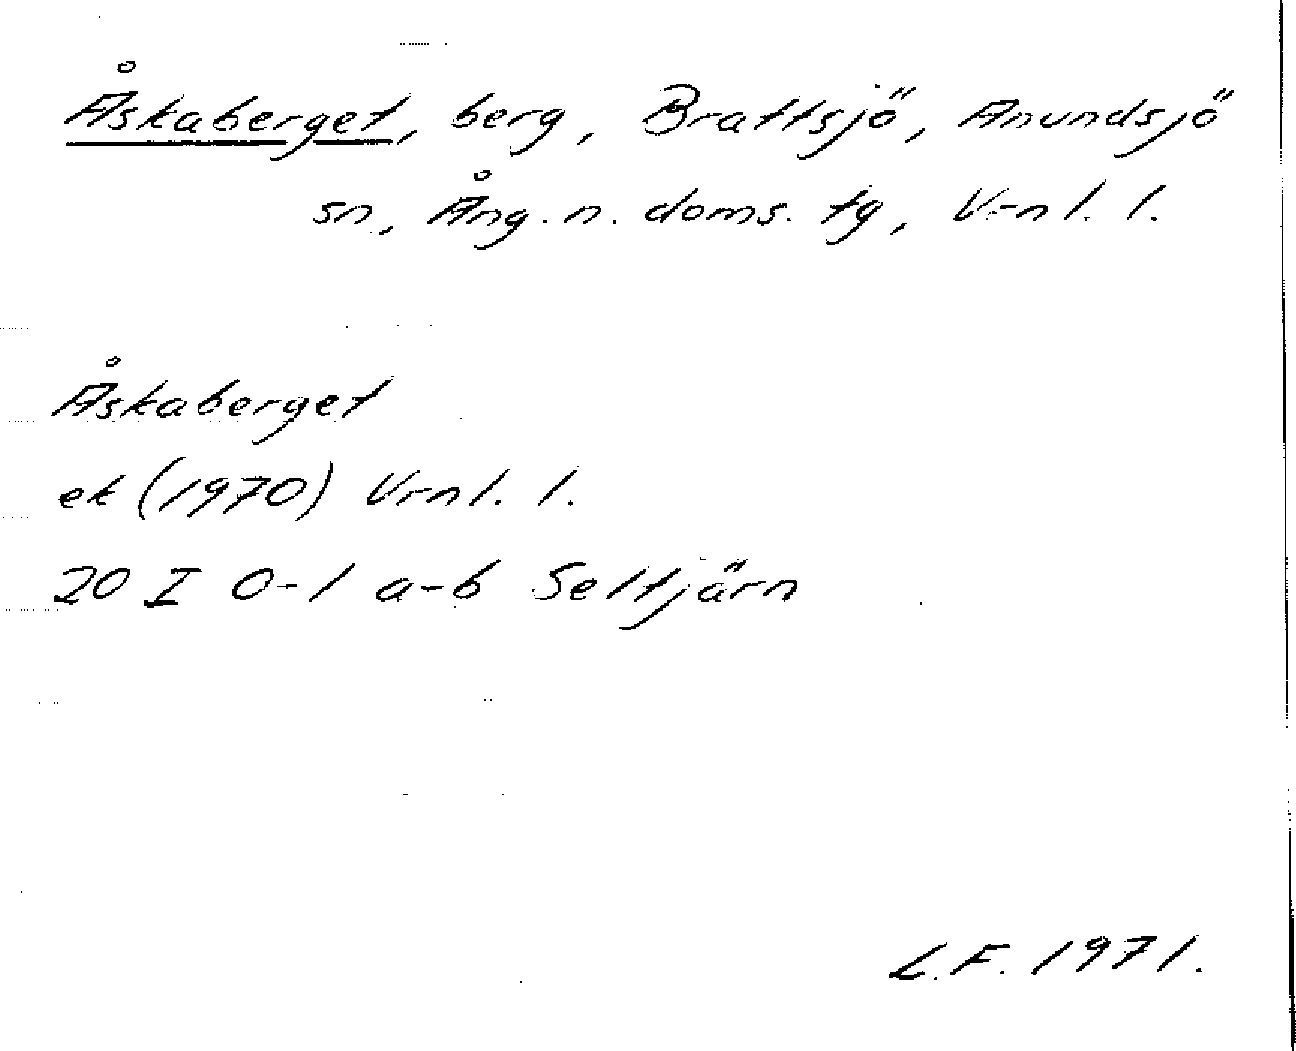 Åskaberget, berg, Brattsjö, Anundsjö
sn, Ång. n. doms. tg, Vrnl. l.
Åskaberget
ek (1970) Vrnl. l.
20 I 0-1 a-b Seltjärn
L.F. 1971.